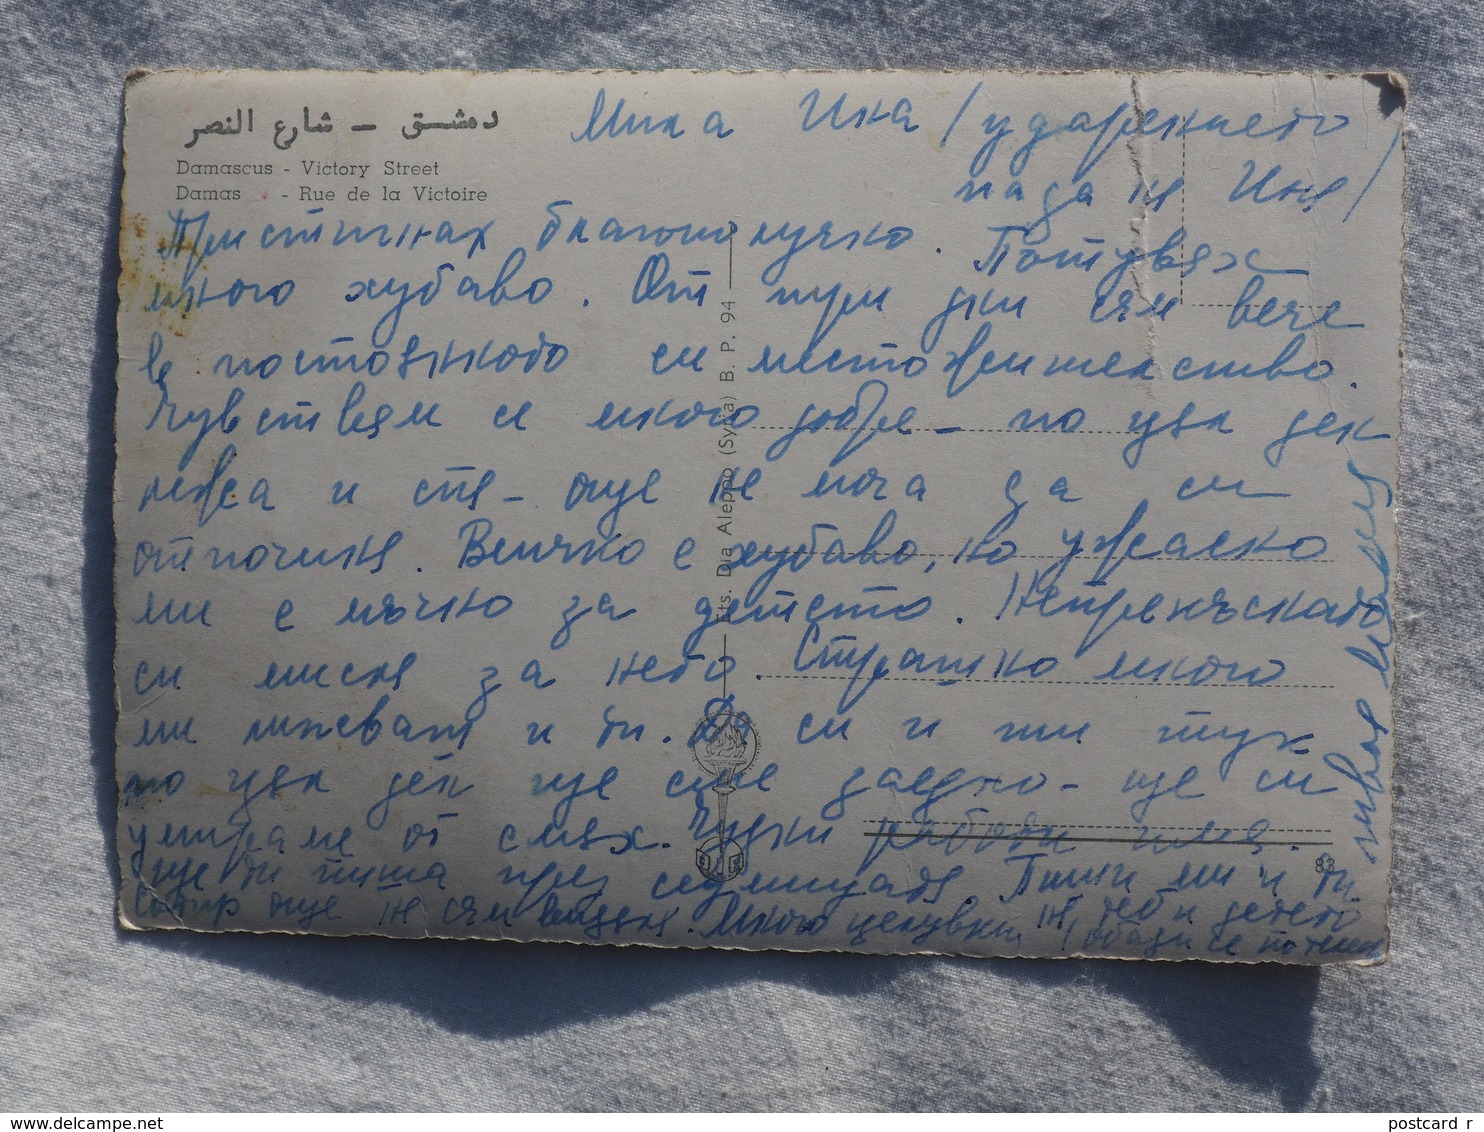 دمشق – شارع النصر
Damascus - Victory Street
Damas - Rue de la Victoire
Мила Ина /ударението
пада на Ина/
Пристигнах благополучно. Пътувах
много хубаво. От три дни съм вече
в постоянното си местожителство.
Чувствам се много добре – по цял ден
и спя – още не мога да си
отпочина. Всичко е хубаво, но ужасно
ми е мъчно за детето. Непрекъснато
си мисля за него. Страшно много
ми липсваш и ти. Да си и ти тук
по цял ден ще сме заедно – ще си
умираме от смях. Чудни работи има.
Ще ти пиша през седмицата. Пиши ми и ти
още не съм виждала. Много целувки на теб и детето
/обади се по
Ets. Dia Aleppo (Syria) B. P. 94
83
postcard r
www.delcampe.net